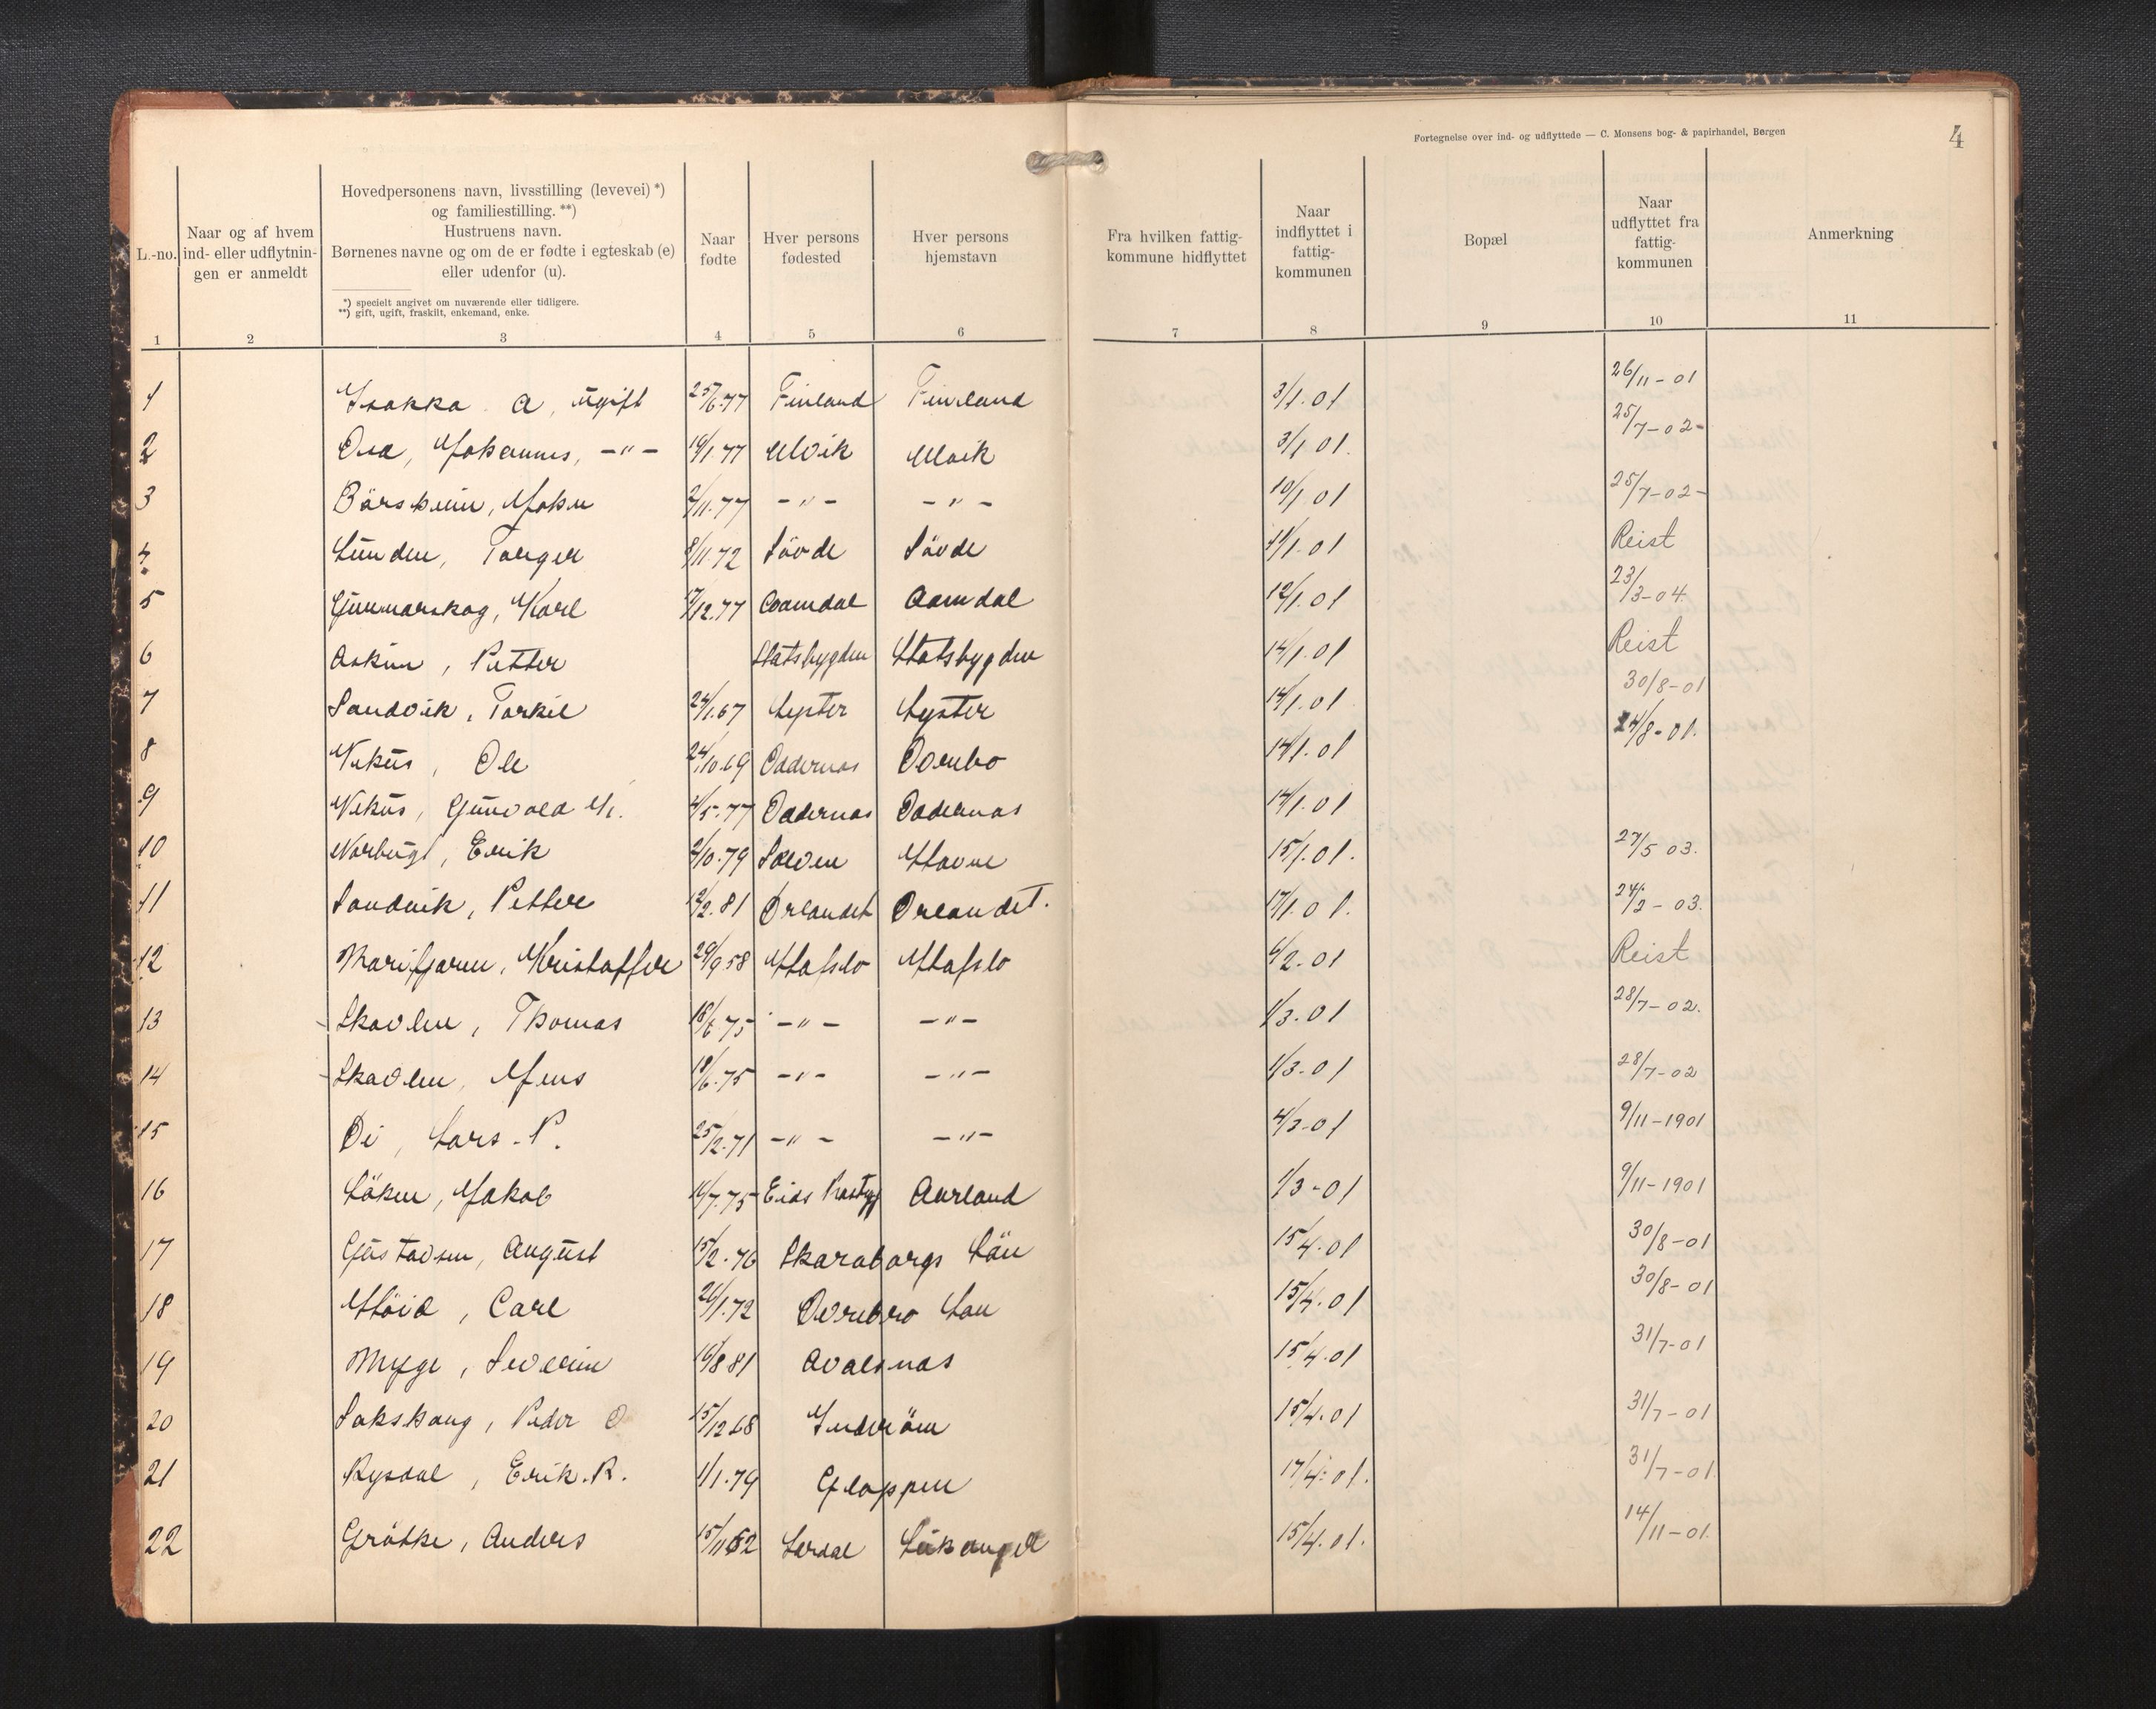 Fortegnelse over ind- og udflyttede — C. Monsens bog- & papirhandel, Bergen
4
L.-no.
Naar og af hvem ind- eller udflytnin- gen er anmeldt
Hovedpersonens navn, livsstilling (levevei) *) og familiestilling. **) Hustruens navn. Børnenes navne og om de er fødte i egteskab (e) eller udenfor (u).
*) specielt angivet om nuværende eller tidligere.
**) gift, ugift, fraskilt, enkemand, enke.
Naar fødte
Hver persons fødested
Hver persons hjemstavn
Fra hvilken fattig- kommune hidflyttet
Naar indflyttet i fattig- kommunen
Bopæl
Naar udflyttet fra fattig- kommunen
Anmerkning
1 2 3 4 5 6 7 8 9 10 11
1 Isakka A, ugift 25/6.77 Finland Finland 3/1.01 26/11-01
2 Osa, Johannes, -"- 19/1 77 Ulvik Ulvik 3/1 01. 25/7-02-
3 Börsheim, John 2/11.77 -"- -"- 10/1 01 25/7-02-
4 Lunden, Torger 8/11.72 Sövde Sövde 11/1.01 Reist
5 Gunnarskog, Karl 17/12.77 Aamdal Aamdal 12/1.01 23/3-04.
6 Askim, Petter Statsbygden Statsbygden 14/1.01 Reist
7 Sandvik, Torkil 24/1.67 Lyster Lyster 14/1.01 30/8-01
8 Nekus, Ole 24/10.69 14/1.01 24/8-01.
9 Nekus, Gunvald 4/5.77 14/1.01
10 Norbugt, Erik 2/10.79 15/1.01. 27/5 03.
11 Sandvik, Petter 12/2.81 Örlandet Örlandet. 17/1.01. 24/2-03.
12 Marifjæren, Kristoffer 29/9 58 Hafslo Hafslo 6/2-01 Reist
13 Skavlen, Thomas 18/6 75 -"- -"- 1/3.01 28/7-02.
14 Skavlen, Jens 18/6.75 -"- -"- 1/3-01 28/7-02
15 Öi, Lars P. 25/2.71 -"- -"- 4/3-01 9/11-1901
16 Löken, Jakob 11/7.75 Eids Aurland 1/3-01 9/11-1901
17 Gustavsen, August 15/2.76 Skaraborgs Län 15/4.01 30/8-01
18 Höid, Carl 26/1.72 Örebro Län 15/4.01 30/8-01
19 Myge, Severin 16/8 81 Avalsnas 15/4.01 31/7-01
20 Sakshaug, Peder O 15/12 68 Inderöen 15/4.01 31/7-01
21 Rysdal, Erik. R. 1/1.79 Gloppen 17/4.01. 31/7-01.
22 Gröthe, Anders 15/11 62 Lerdal Leikanger 15/4.01. 14/11-01.